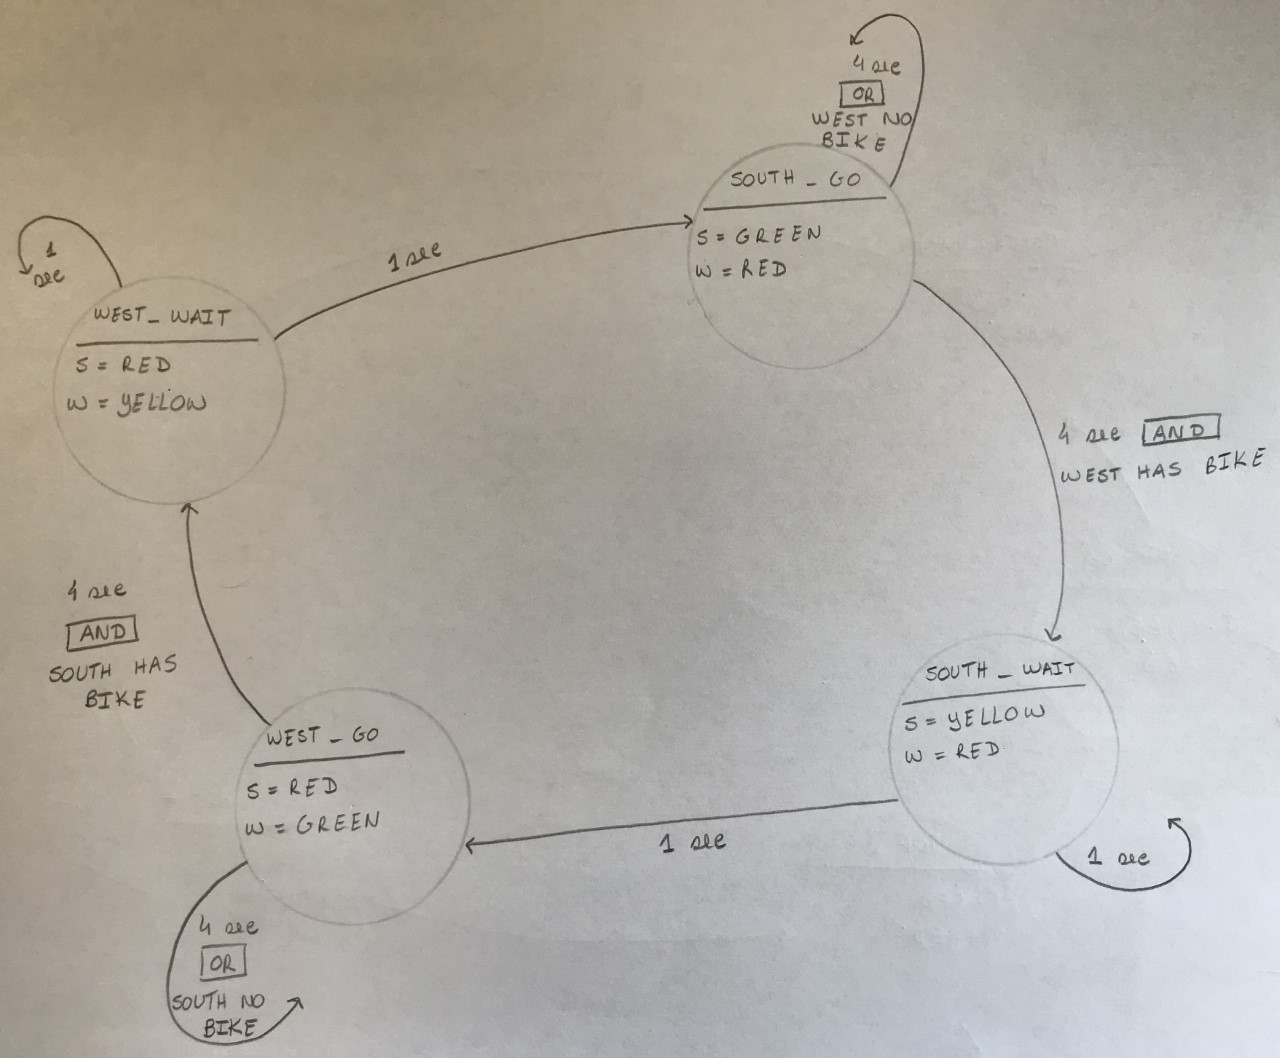 4 sec
OR
WEST NO
BIKE
SOUTH _ GO
S = GREEN
W = RED
1 sec
1
sec
WEST_ WAIT
S = RED
W = YELLOW
4 sec AND
WEST HAS BIKE
4 sec
AND
SOUTH HAS
BIKE
SOUTH _ WAIT
S = YELLOW
W = RED
WEST _ GO
S = RED
W = GREEN
1 sec
1 sec
4 sec
OR
SOUTH NO
BIKE